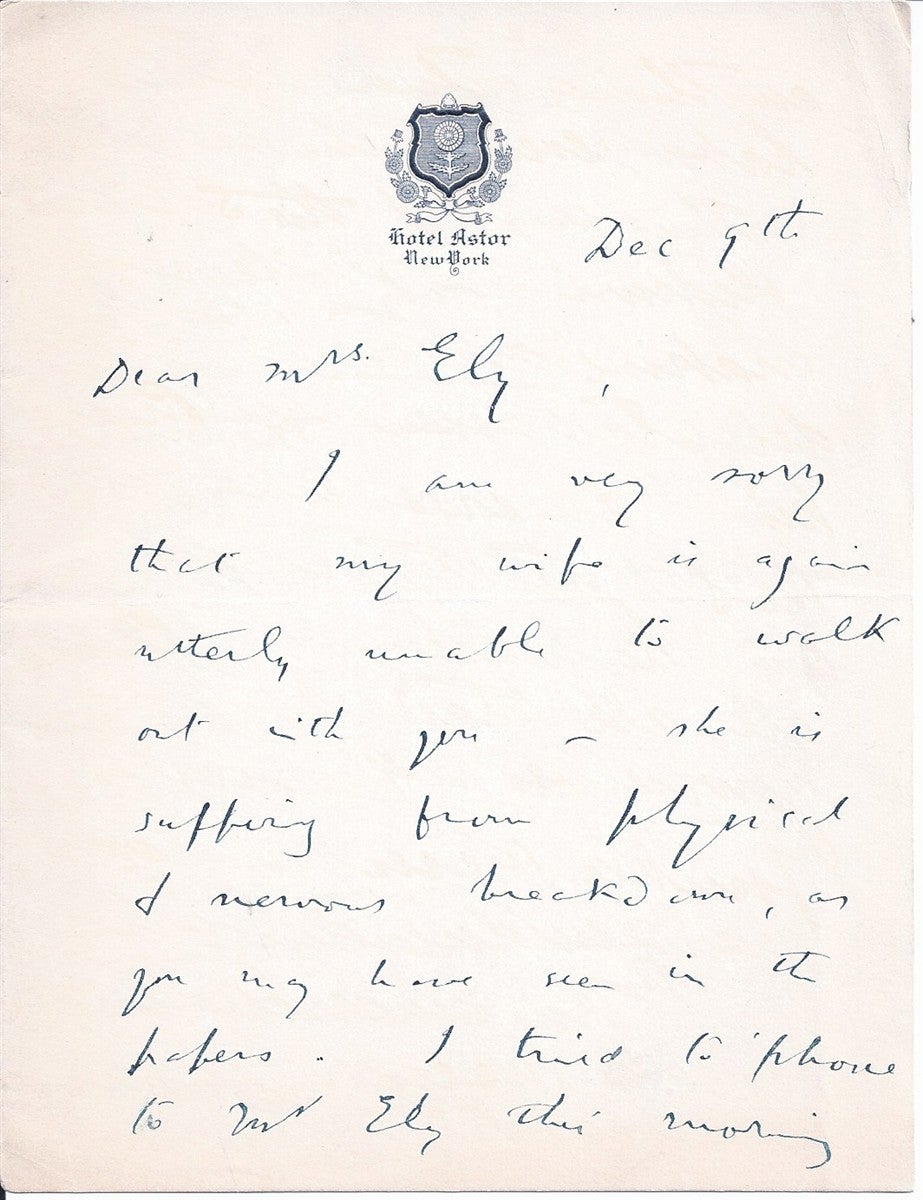 Hotel Astor
New York
Dec 9th
Dear Mrs. Ely,
I am very sorry
that my wife is again
utterly unable to walk
out with you – she is
suffering from physical
& nervous breakdown, as
you may have seen in the
papers. I tried to 'phone
to Mr Ely this morning